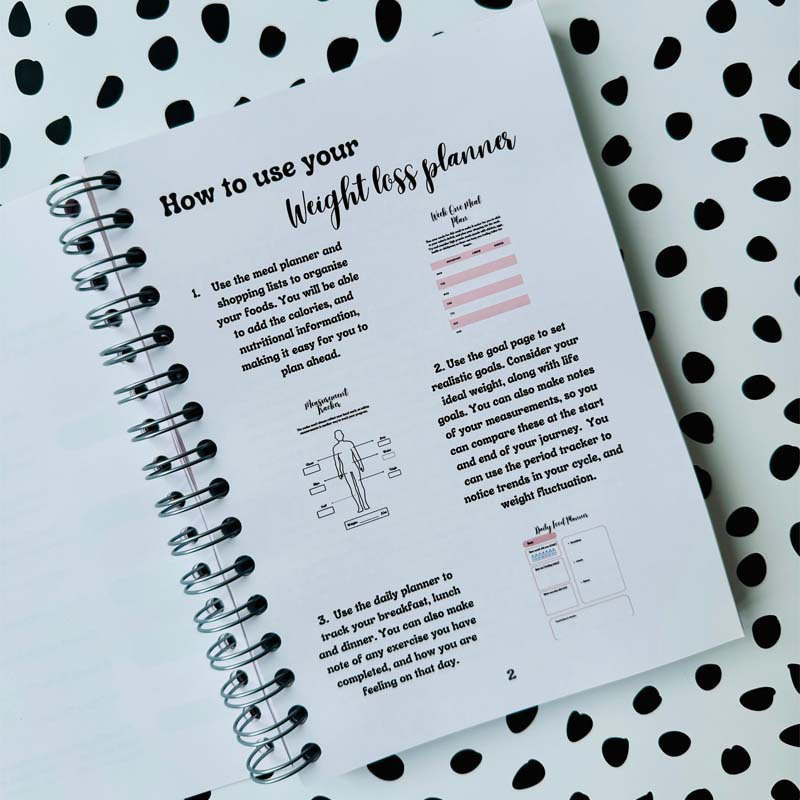 How to use your
Weight loss planner
1. Use the meal planner and
shopping lists to organise
your foods. You will be able
to add the calories, and
nutritional information,
making it easy for you to
plan ahead.
Week One Meal
Plan
2. Use the goal page to set
realistic goals. Consider your
ideal weight, along with life
goals. You can also make notes
of your measurements, so you
can compare these at the start
and end of your journey. You
can use the period tracker to
notice trends in your cycle, and
weight fluctuation.
Measurement
Tracker
Weight
Daily Food Planner
3. Use the daily planner to
track your breakfast, lunch
and dinner. You can also make
note of any exercise you have
completed, and how you are
feeling on that day.
2